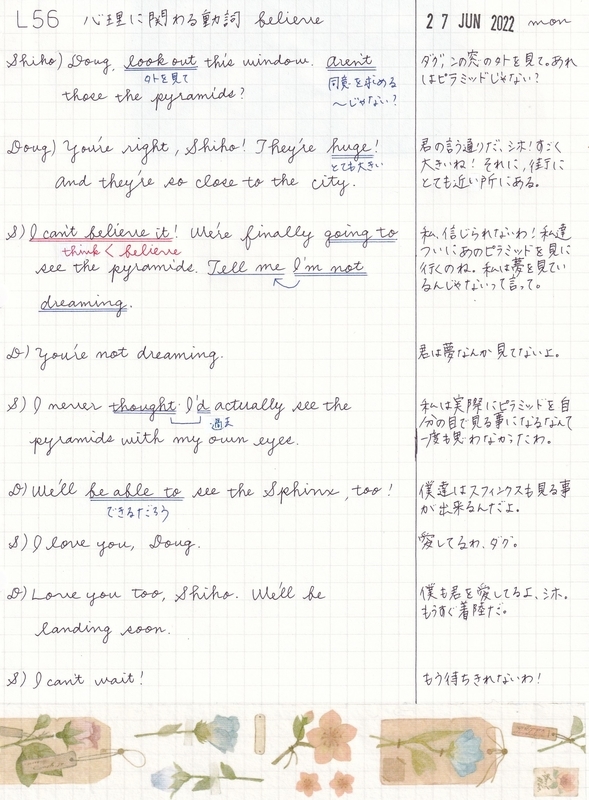 L56 心理に関わる動詞 believe
27 JUN 2022 mon
Shiho) Doug, look out this window. Aren't
外を見て
同意を求める
〜じゃない?
those the pyramids?
ダグ、この窓の外を見て。あれ
はピラミッドじゃない?
Doug) You're right, Shiho! They're huge!
とても大きい
And they're so close to the city.
君の言う通りだ、シホ!すごく
大きいね!それに、街に
とても近い所にある。
S) I can't believe it! We're finally going to
think < believe
see the pyramids. Tell me I'm not
dreaming.
私、信じられないわ!私達
ついにあのピラミッドを見に
行くのね。私は夢を見てい
るんじゃないって言って。
D) You're not dreaming.
君は夢なんか見てないよ。
S) I never thought I'd actually see the
過去
pyramids with my own eyes.
私は実際にピラミッドを自
分の目で見る事になるなんて
一度も思わなかったわ。
D) We'll be able to see the Sphinx, too!
できるだろう
僕達はスフィンクスも見る事
が出来るんだよ。
S) I love you, Doug.
愛してるわ、ダグ。
D) Love you too, Shiho. We'll be
landing soon.
僕も君を愛してるよ、シホ。
もうすぐ着陸だ。
S) I can't wait!
もう待ちきれないわ!